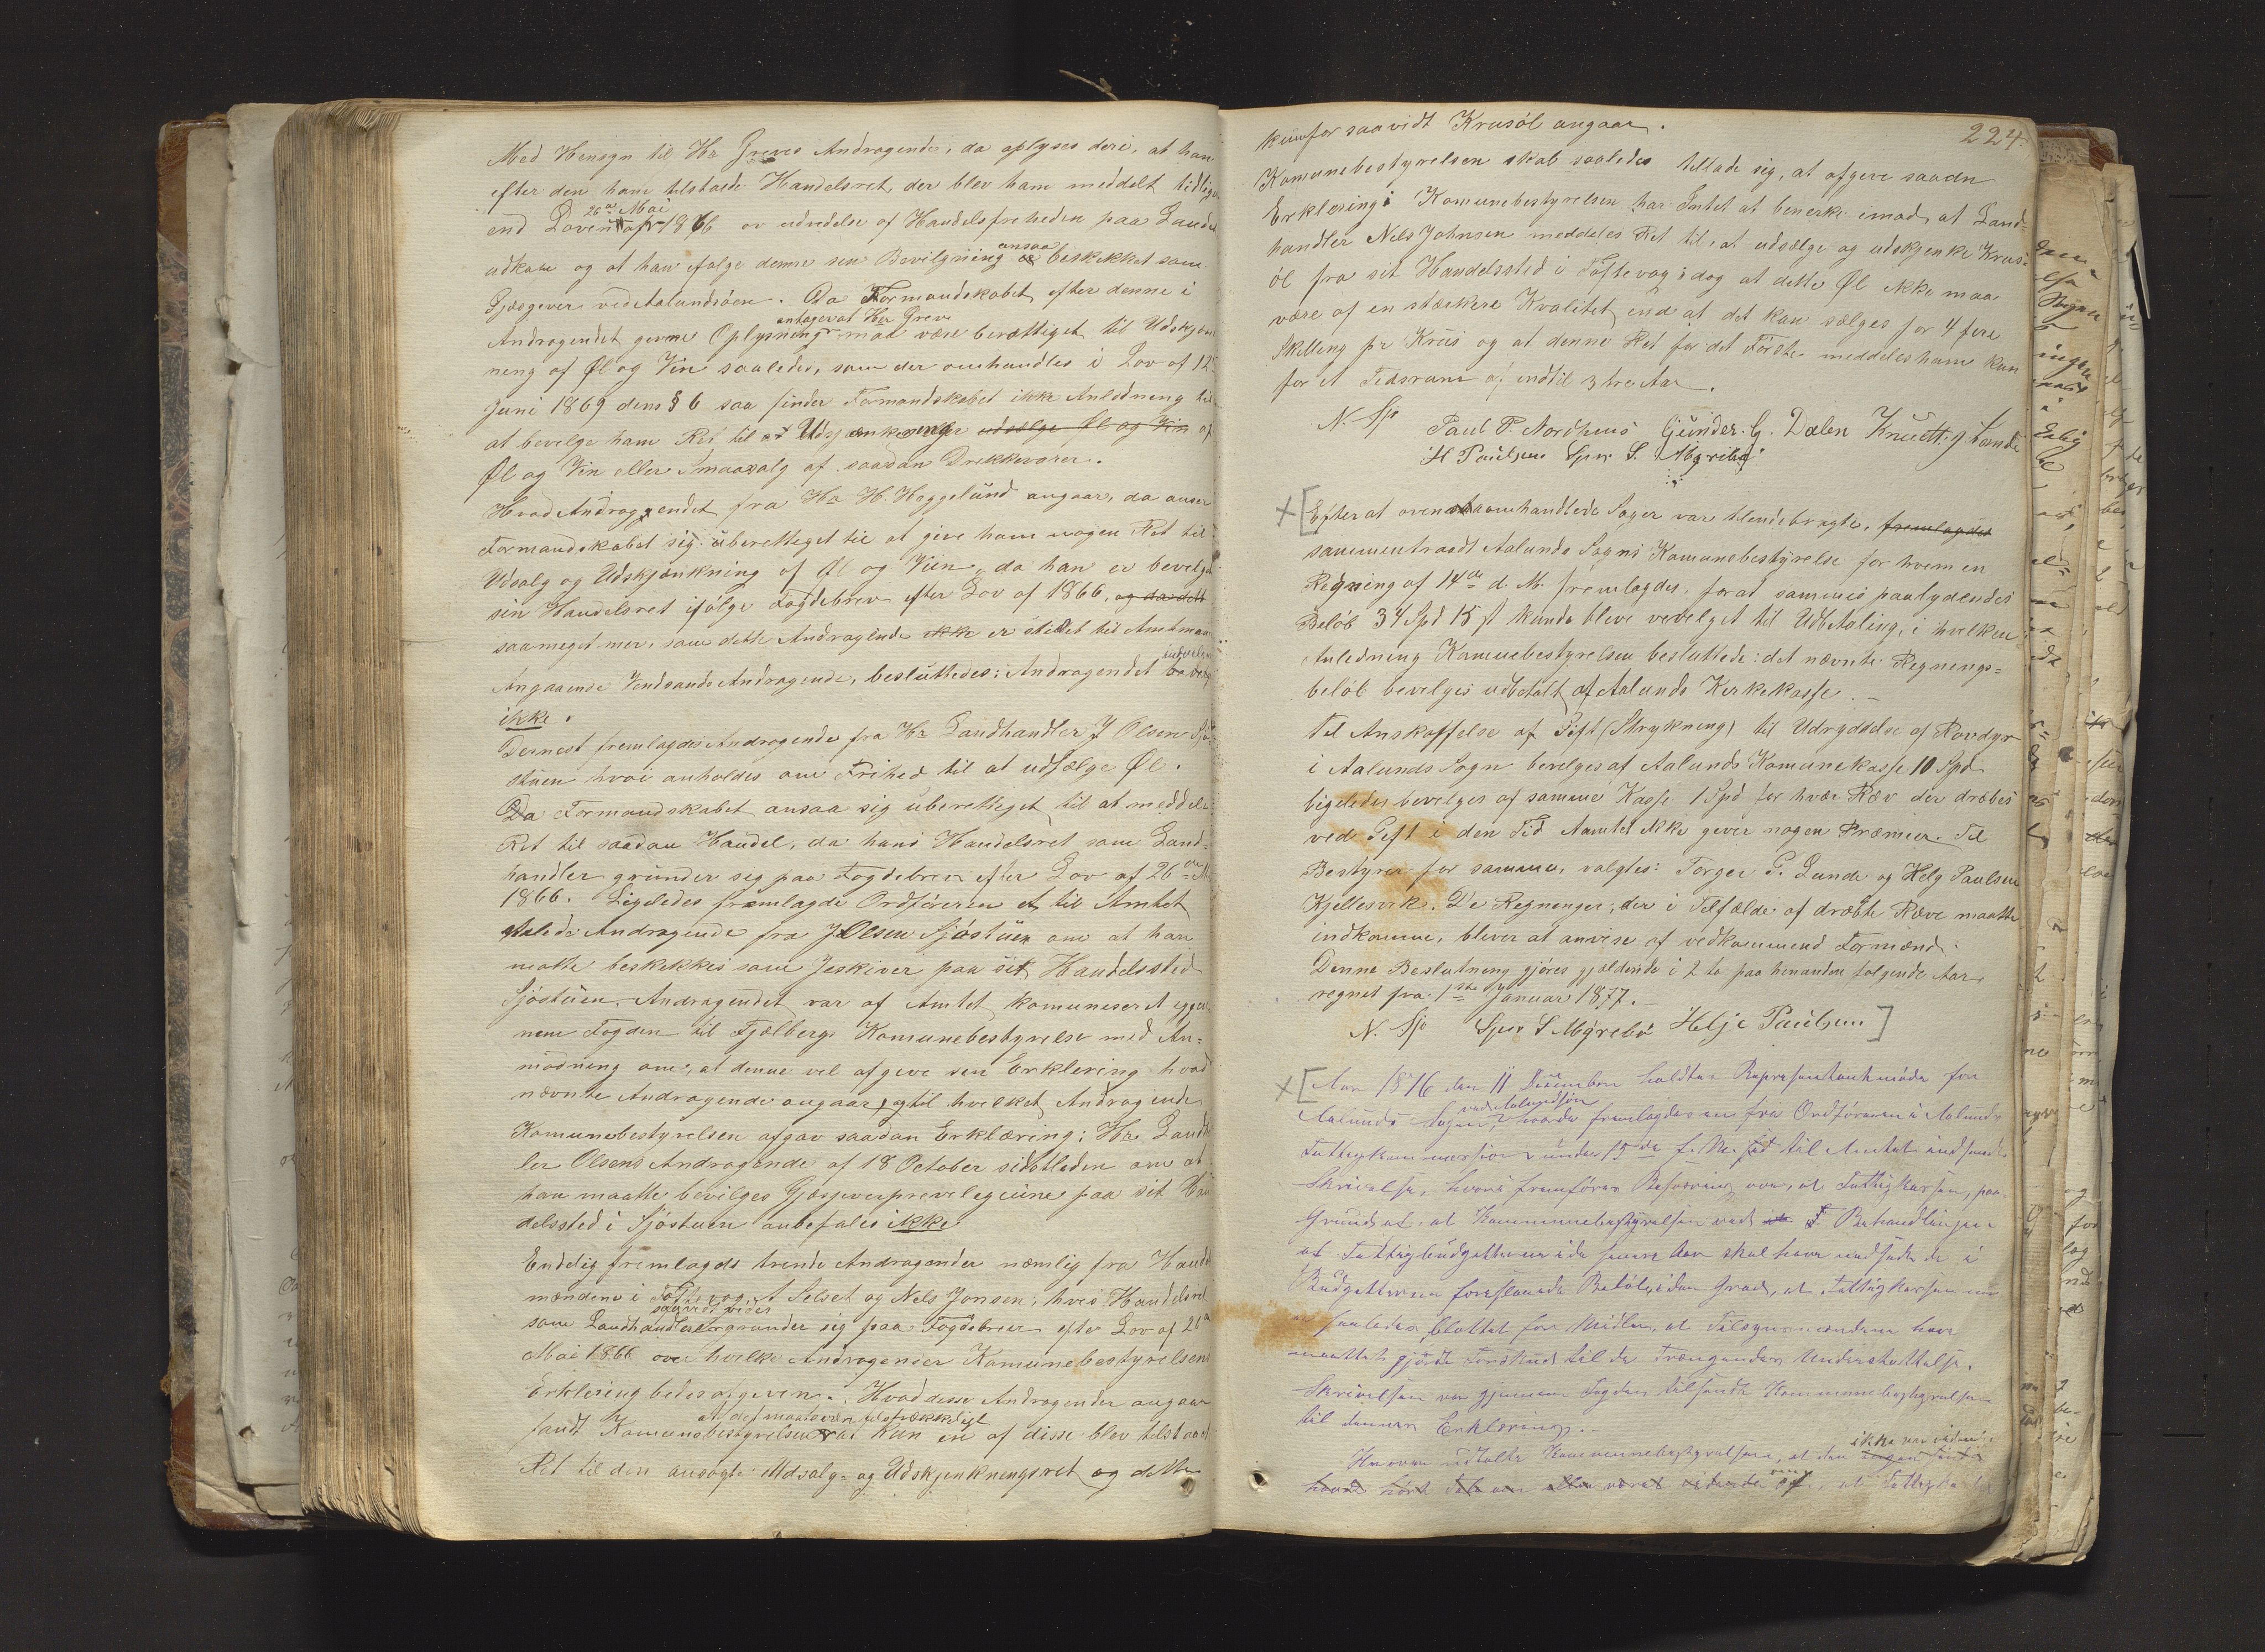 Med Hensyn til Hr Greves Andragende, da oplyses deri, at han
efter den ham tilstaaede Handelsret, der blev ham meddelt tidligere
26de Mai
end Loven af 1866 om udvidelse af Handelsfriheden paa Landet
ansaa
udkom og at han ifølge denne sin Bevilgning beskikket som
Gjæsgiver ved Aalundsöen. Da Formandskabet efter denne i
antager at Hr Greve
Andragendet givne Oplysning maa være berættiget til Udskjænk
ning af Øl og Vin saaledes, som der omhandles i Lov af 12
Juni 1869 dens § 6 saa finder Formandskabet ikke Anledning til
at bevilge ham Ret til Udskjænkning udsælge Øl og Vin af
Øl og Vin eller Smaasalg af saadan Drikkevarer.
Hvad Andragendet fra Hr H. Heggelund angaar, da anser
Formandskabet sig uberettiget til at give ham nogen Ret til
Udsalg og Udskjænkning af Øl og Viin, da han er bevilget
sin Handelsret ifölge Fogdebrev efter Lov af 1866, og da dette
saameget mer, som dette Andragende ikke er stillet til Amtman
indvilges
Angaaende Vendsands Andragende, besluttedes: Andragendet
ikke.
Dernest fremlagdes Andragende fra Hr Landhandler J Olsen Sjö
stuen hvori anholdes om Frihed til at udsælge Øl.
Da Formandskabet ansaa sig uberettiget til at meddele
Ret til saadan Handel, da hans Handelsret som Land-
handler grunder sig paa Fogdebrev efter Lov af 26de M
1866. Ligeledes fremlagde Ordföreren et til Amtet
stilede Andragende fra J Olsen Sjöstuen om at han
matte beskikkes som Jeskiver paa sit Handelssted
Sjöstuen. Andragendet var af Amtet komuniseret igjen-
nem Fogden til Fjelbergs Komunebestyrelse med An-
modning om, at denne vil afgive sin Erklering hvad
nævnte Andragende angaar, og til hvilket Andragende
Komunebestyrelsen afgav saadan Erklæring: Hr Landh
ler Olsens Andragende af 18 October sidstleden om at
han maatte bevilges Gjæsgiverprevelegiune paa sit Han
delssted i Sjöstuen anbefales ikke
Endelig fremlagds trende Andragender nemlig fra Handels
mændene i Toftevog A Selset og Nels Jonsen, hvis Handelsret
saavidt vides
som Landhandlere grunder sig paa Fogdebrev efter Lov af 26de
Mai 1866 over hvilke Andragender Komunebestyrelsens
Erklering bedes afgiven. Hvad disse Andragender angaar
at det maatte være tilstrækkeligt
fandt Komunebestyrelsen at kun en af disse blev tilstaaet
Ret til den ansøgte Udsalgs- og Udskjenkningsret og dette
224.
kun for saavidt Krusöl angaar.
Komunebestyrelsen skal saaledes tillade sig, at afgive saadn
Erklering: Komunebestyrelsen har Intet at bemerke imod, at Land-
handler Nels Johnsen meddeles Ret til, at udsælge og udskjenke Krus-
öl fra sit Handelssted i Toftevog; dog at dette Øl ikke maa
være af en stærkere Kvalitet, end at det kan sælges for 4 fire
Skilling pr Krus og at denne Ret for det Förste meddeles ham kun
for et Tidsrum af indtil 3 tre Aar.
N. Sjo Paul P. Nordhuus Gunder. G. Dalen Knut T. Lande
H Paulsen Sjur S. Myrebö
Efterat ovenomhandlede Sager var tilendebragte, fremlagdes
sammentraadt Aalunds Sogns Komunebestyrelse for hvem en
Regning af 14de d. M. fremlagdes, forat sammes paalydendes
Belöb 34 Spd 15 β kunde bleve bevilget til Udbetaling, i hvilken
Anledning Komunebestyrelsen besluttede: det nævnte Regnings-
belöb bevilges udbetalt af Aalunds Kirkekasse.-
Til Anskaffelse af Gift (Stryknin) til Udryddelse af Rovdyr
i Aalunds Sogn bevilges af Aalunds Komunekasse 10 Spd
ligeledes bevilges af samme Kasse 1 Spd for hver Ræv der dræbes
ved Gift i den Tid Amtet ikke giver nogen Præmier. Til
Bestyrer for samme, valgtes: Torger P. Lunde og Helg Paulsen
Kjellesvik. De Regninger, der i Tilfælde af dræbte Ræve maatte
indkomme, bliver at anvise af vedkommend Formænd.
Denne Beslutning gjöres gjældende i 2 to paa hinanden følgende Aar
regnet fra 1ste Januar 1877.-
N. Sjo Sjur S Myrebö Helje Paulsen
Aar 1876 den 11 Desember holdtes Representantmöde for
ved Aalundsöen
Aalunds Sogn, hvorda fremlagdes en fra Ordföreren i Aalunds
Fattigkommission under 15de f. M. til Amtet indsendt
Skrivelse, hvori fremföres Besværing over, at Fattigkassen, paa
Grund af at Kommunebestyrelsen ved Behandlingen
af Fattigbudgetterne i de senere Aar skal have nedsatte de i
Budgetterne foreslaaede Belöb i den Grad, at Fattigkassen nu
er saaledes blottet for Midler, at Tilsynsmændene have
maattet gjörde Forskud til de Trængendes Understøttelse.
Skrivelsen var gjennem Fogden tilsendt Kommunebestyrelsen
til dennes Erklæring.-
ikke var vidende
Herover udtalte Kommunebestyrelsen, at den
om
havde hört Tale om eller været vidende af, at Fattigkassen